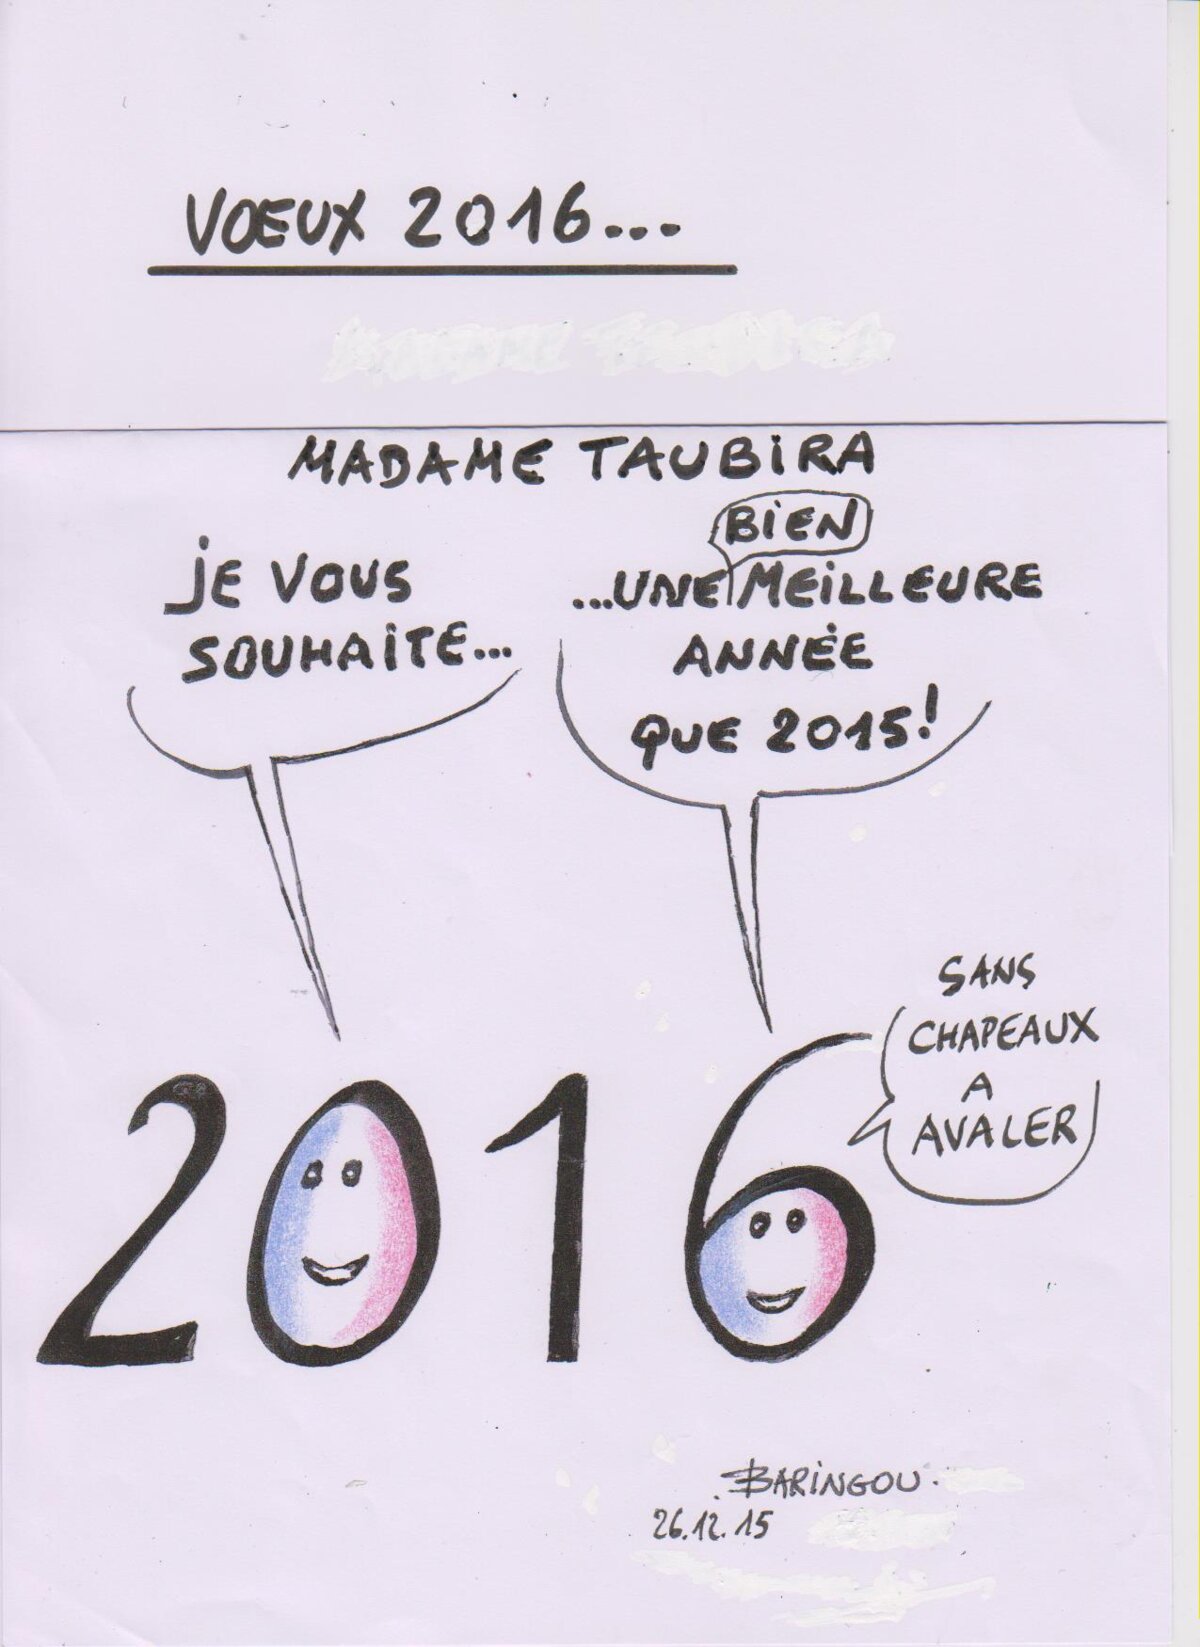 VOEUX 2016...
MADAME TAUBiRA
jE VOUS
SOUHAiTE...
BiEN
...UNE MEiLLEURE
ANNÉE
QUE 2015!
SANS
CHAPEAUX
A
AVALER
2016
BARiNGOU.
26.12.15